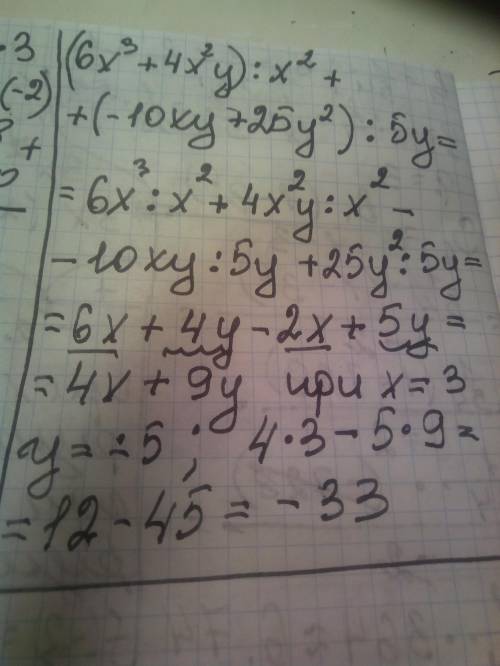 ·3
(-2)
+
(6x³+4x²y):x²+
+(-10xy+25y²):5y=
=6x³:x²+4x²y:x²-
-10xy:5y+25y²:5y=
=6x+4y-2x+5y=
=4x+9y при x=3
y=-5; 4·3-5·9=
=12-45=-33